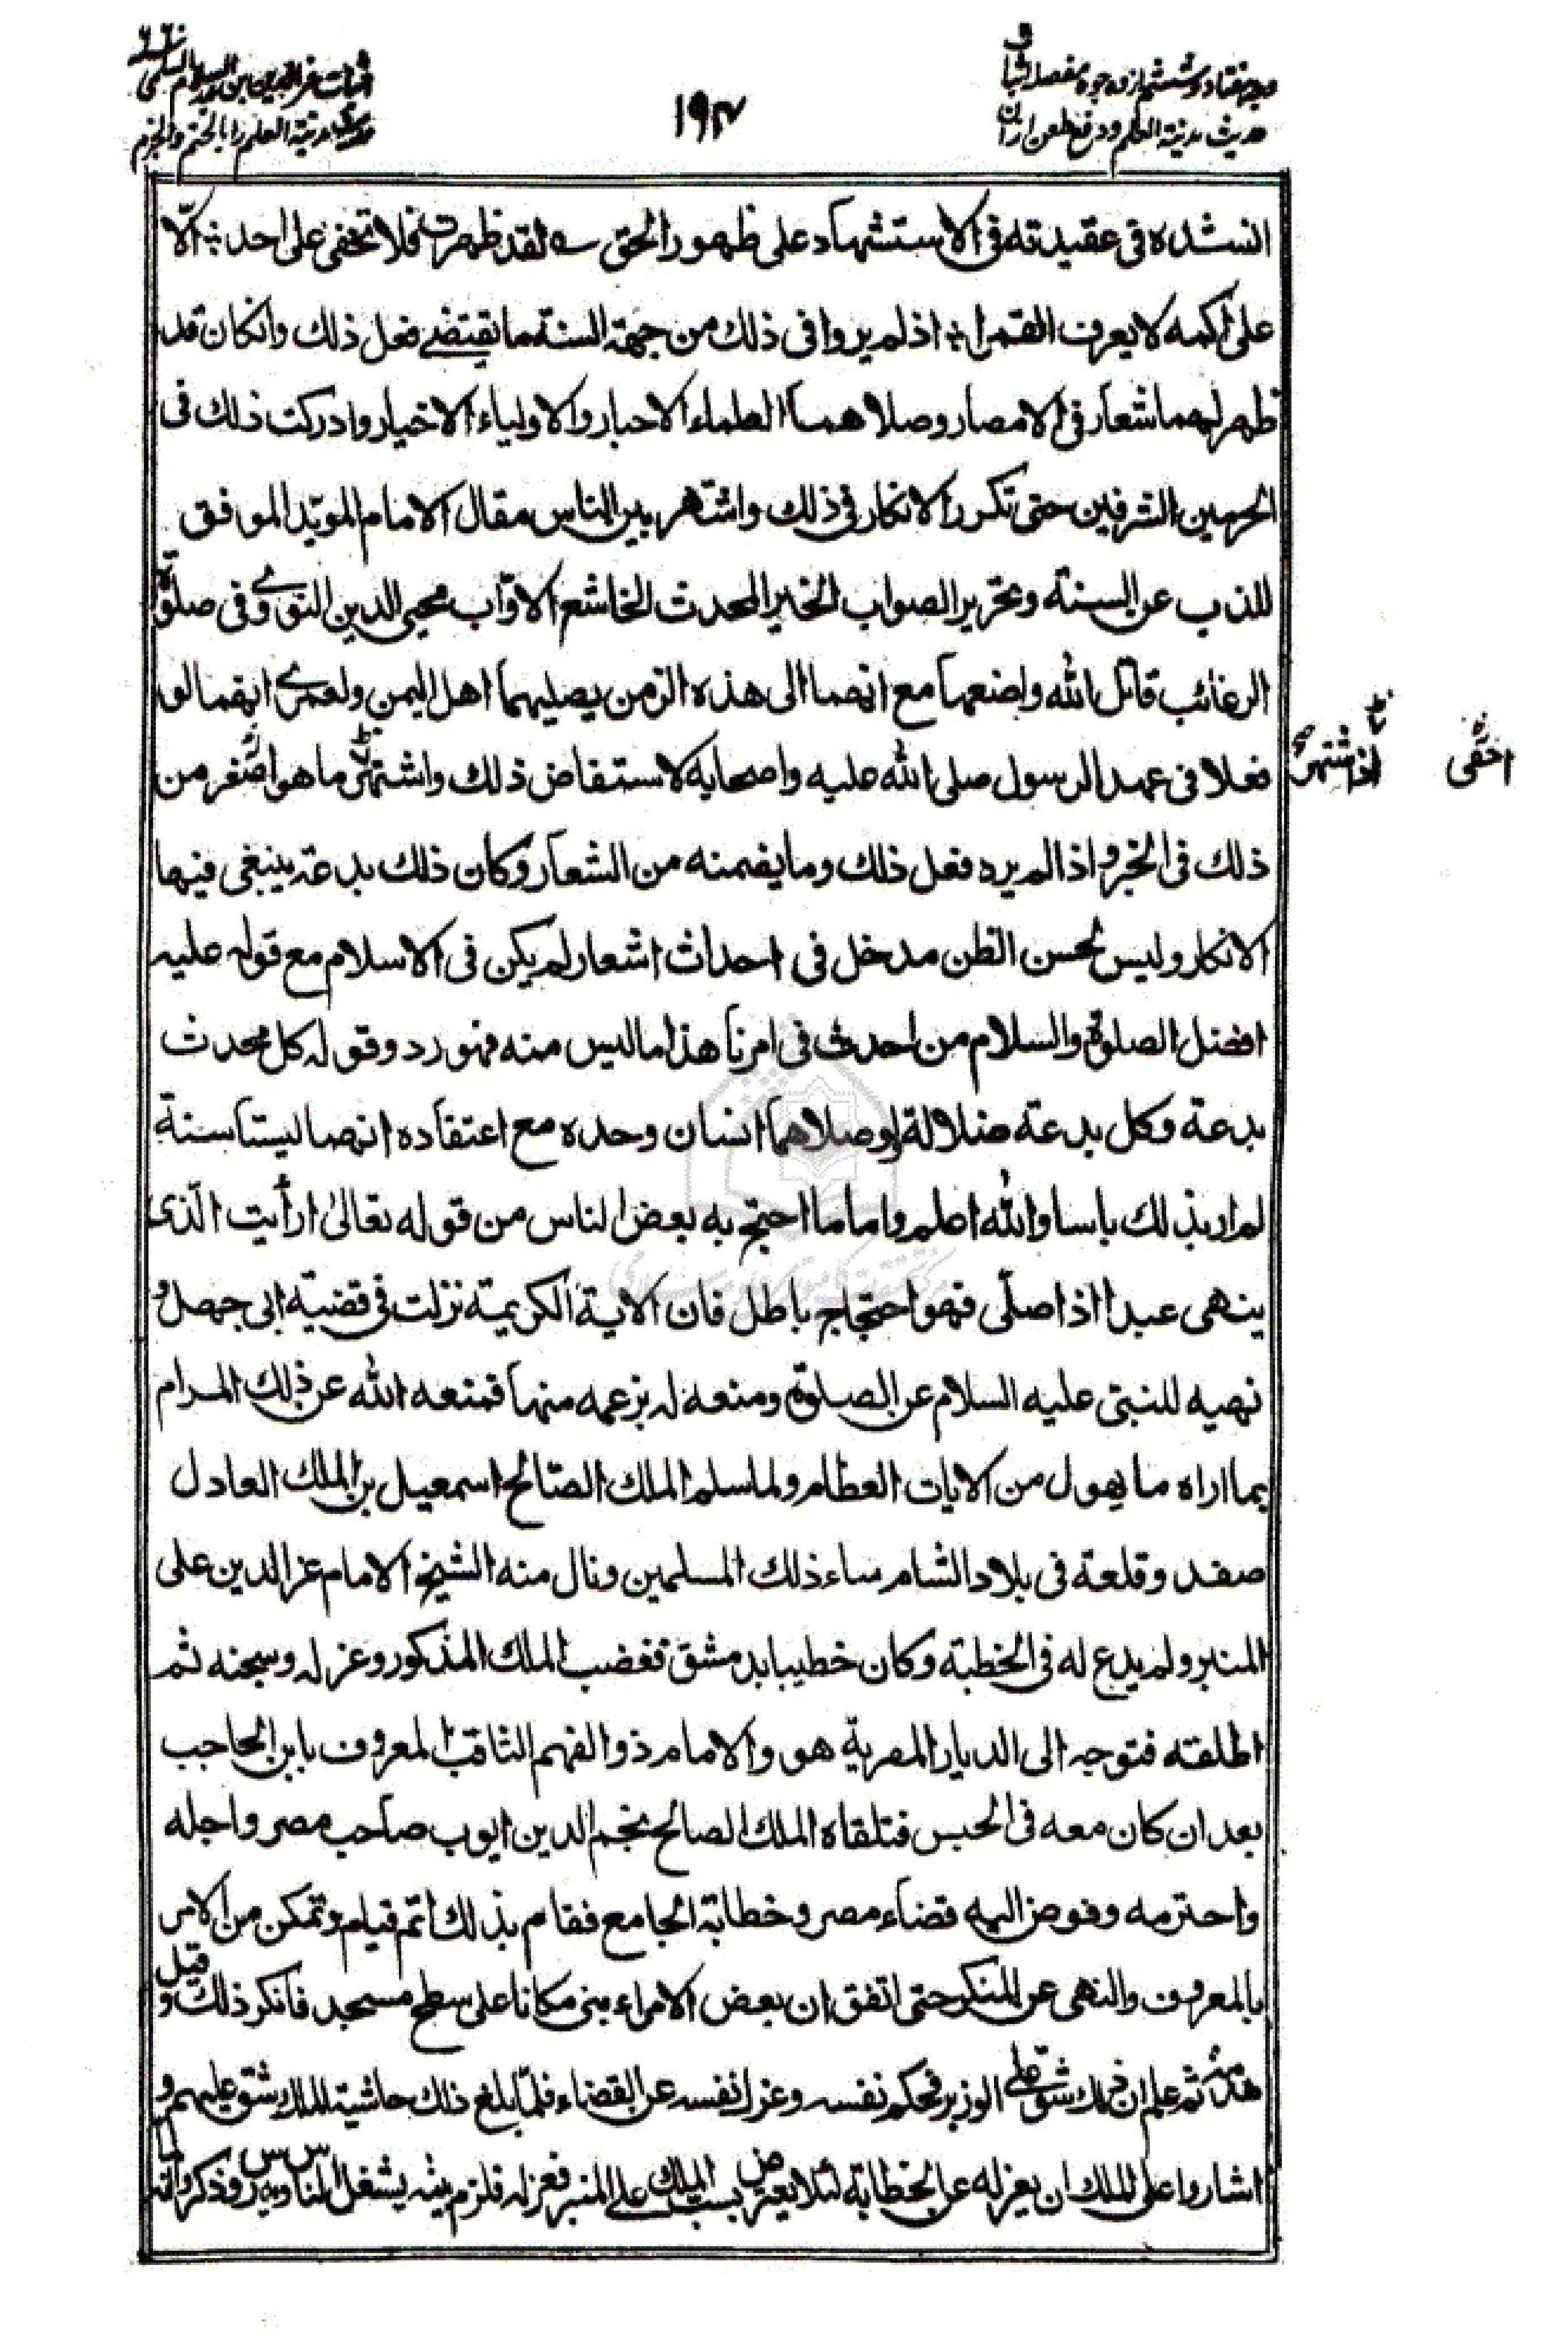 وجه هفتاد و ششم از وجوه مفصل اثبات
حدیث مدینة العلم و دفع طعن ازان
۱۹۴
اثبات عز الدین بن عبد السلام السلمی ۶۶۰
حدیث مدینة العلم را بالحتم و الجزم
انشده فى عقيدته فى الاستشهاد على ظهور الحق لقد ظهرت فلا تخفى على احد الّا
على اكمه لا يعرف القمرا اذ لم يروا فى ذلك من جهة السنة ما يقتضے فعل ذلك وانكان قد
ظهر لهما شعار فى الامصار وصلاهما العلماء الاحبار والاولياء الاخيار وادركت ذلك فى
الحرمين الشرفين حتى تكرر الانكار فى ذلك واشتهر بين الناس مقال الامام المويّد الموفق
للذب عن السنة وتحرير الصواب الخير المحدث الخاشع الاوّاب محيى الدين النووے فى صلوة
الرغائب قاتل الله واضعها مع انهما الى هذه الزمن يصليهما اهل اليمن ولعمرے انهما لو
فعلا فى عهد الرسول صلى الله عليه واصحابه لاستفاض ذلك واشتهر ما هو اصغر من
اذا اشتهر
اخفى
ذلك فى الخبر واذا لم يرد فعل ذلك وما يضمنه من الشعار وكان ذلك بدعة ينبغى فيها
الانكار وليس لحسن الظن مدخل فى احداث اشعار لم يكن فى الاسلام مع قوله عليه
افضل الصلوة والسلام من احدث فى امرنا هذا ما ليس منه فهو رد وقوله كل محدث
بدعة وكل بدعة ضلالة لو صلاهما انسان وحده مع اعتقاده انهما ليستا سنة
لم ار بذلك باسا والله اعلم واما ما احتج به بعض الناس من قوله تعالى ارأيت الّذى
ينهى عبدا اذا صلّى فهو احتجاج باطل فان الاية الكريمة نزلت فى قضية ابى جهل و
نهيه للنبىّ عليه السلام عن الصلوة ومنعه له بزعمه منها فمنعه الله عن ذلك المرام
بما اراه ما يهول من الايات العظام ولما سلم الملك الصّالح اسمعيل بن الملك العادل
صفد وقلعة فى بلاد الشام ساء ذلك المسلمين ونال منه الشيخ الامام عز الدين على
المنبر ولم يدع له فى الخطبة وكان خطيبا بدمشق فغضب الملك المذكور وعزله وسجنه ثم
اطلقه فتوجه الى الديار المصرية هو والامام ذو الفهم الثاقب المعروف بابن الحاجب
بعد ان كان معه فى الحبس فتلقاه الملك الصالح نجم الدين ايوب صاحب مصر واجله
واحترمه وفوض اليه قضاء مصر وخطابة الجامع فقام بذلك اتم قيام وتمكن من الامر
بالمعروف والنهى عن المنكر حتى اتفق ان بعض الامراء بنى مكانا على سطح مسجد فانكر ذلك وقيل
هدمه ثم علم ان ذلك شقّ على الوزير فحكم نفسه وعزل نفسه عن القضاء فلمّا بلغ ذلك حاشية الملك شق عليهم و
اشاروا على الملك ان يعزله عن الخطابة لئلا يعترض بسبّ الملك على المنبر فعزله فلزم بيته يشغل الناس ويدرس وذكروا انه